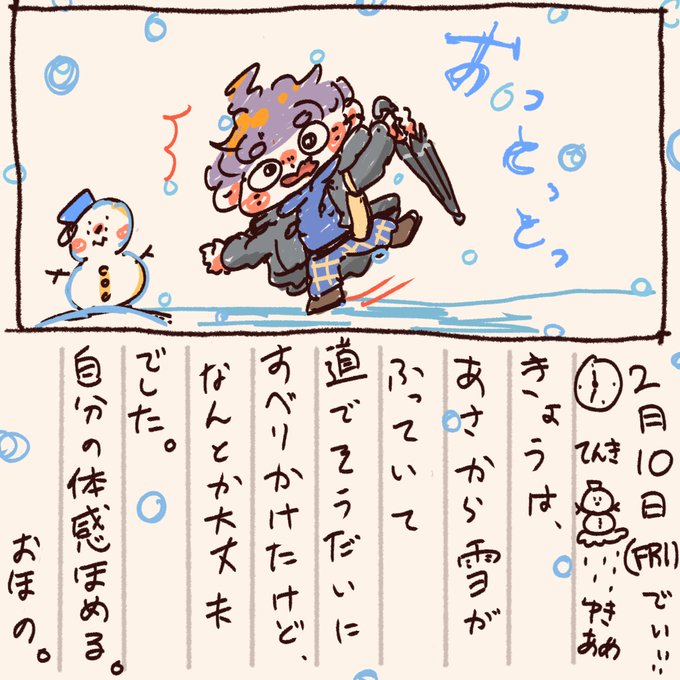 おっとっとっ
2月10日(FRI)でいい
てんき
ゆき
あめ
きょうは、
あさから雪が
ふっていて
道でそうだいに
すべりかけたけど、
なんとか大丈夫
でした。
自分の体感ほめる。
おほの。